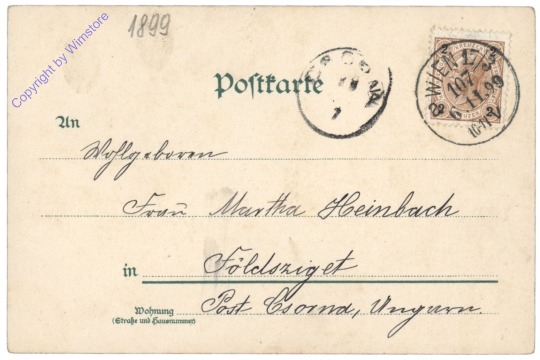 Copyright by Wimstore
1899
Postkarte
WIEN 17/3
107
1.1.99
An
Wohlgeboren
Frau Martha Heinbach
in Földsziget
Wohnung
(Straße und Hausnummer)
Post Csorna, Ungarn.